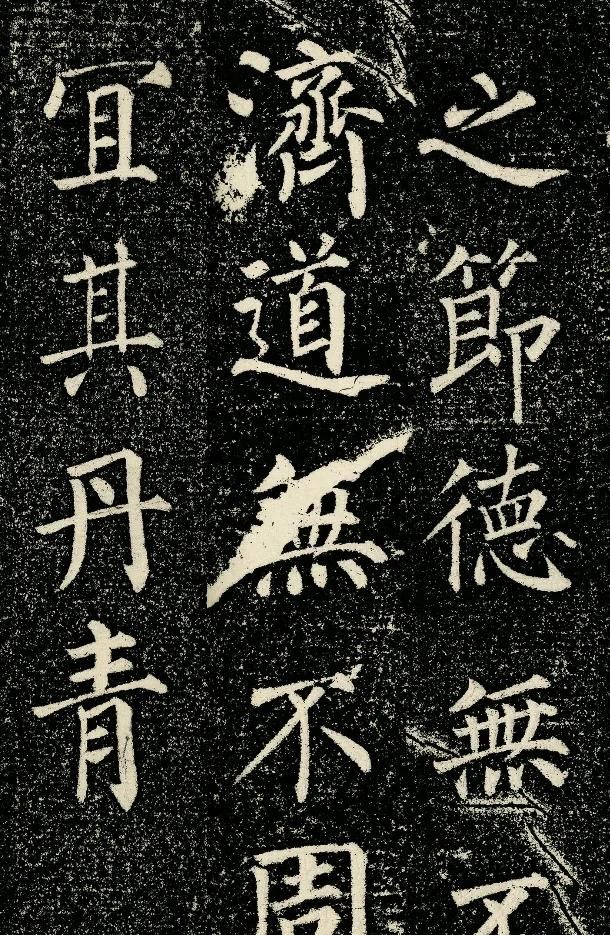 之節德無不
濟道無不周
宜其丹青